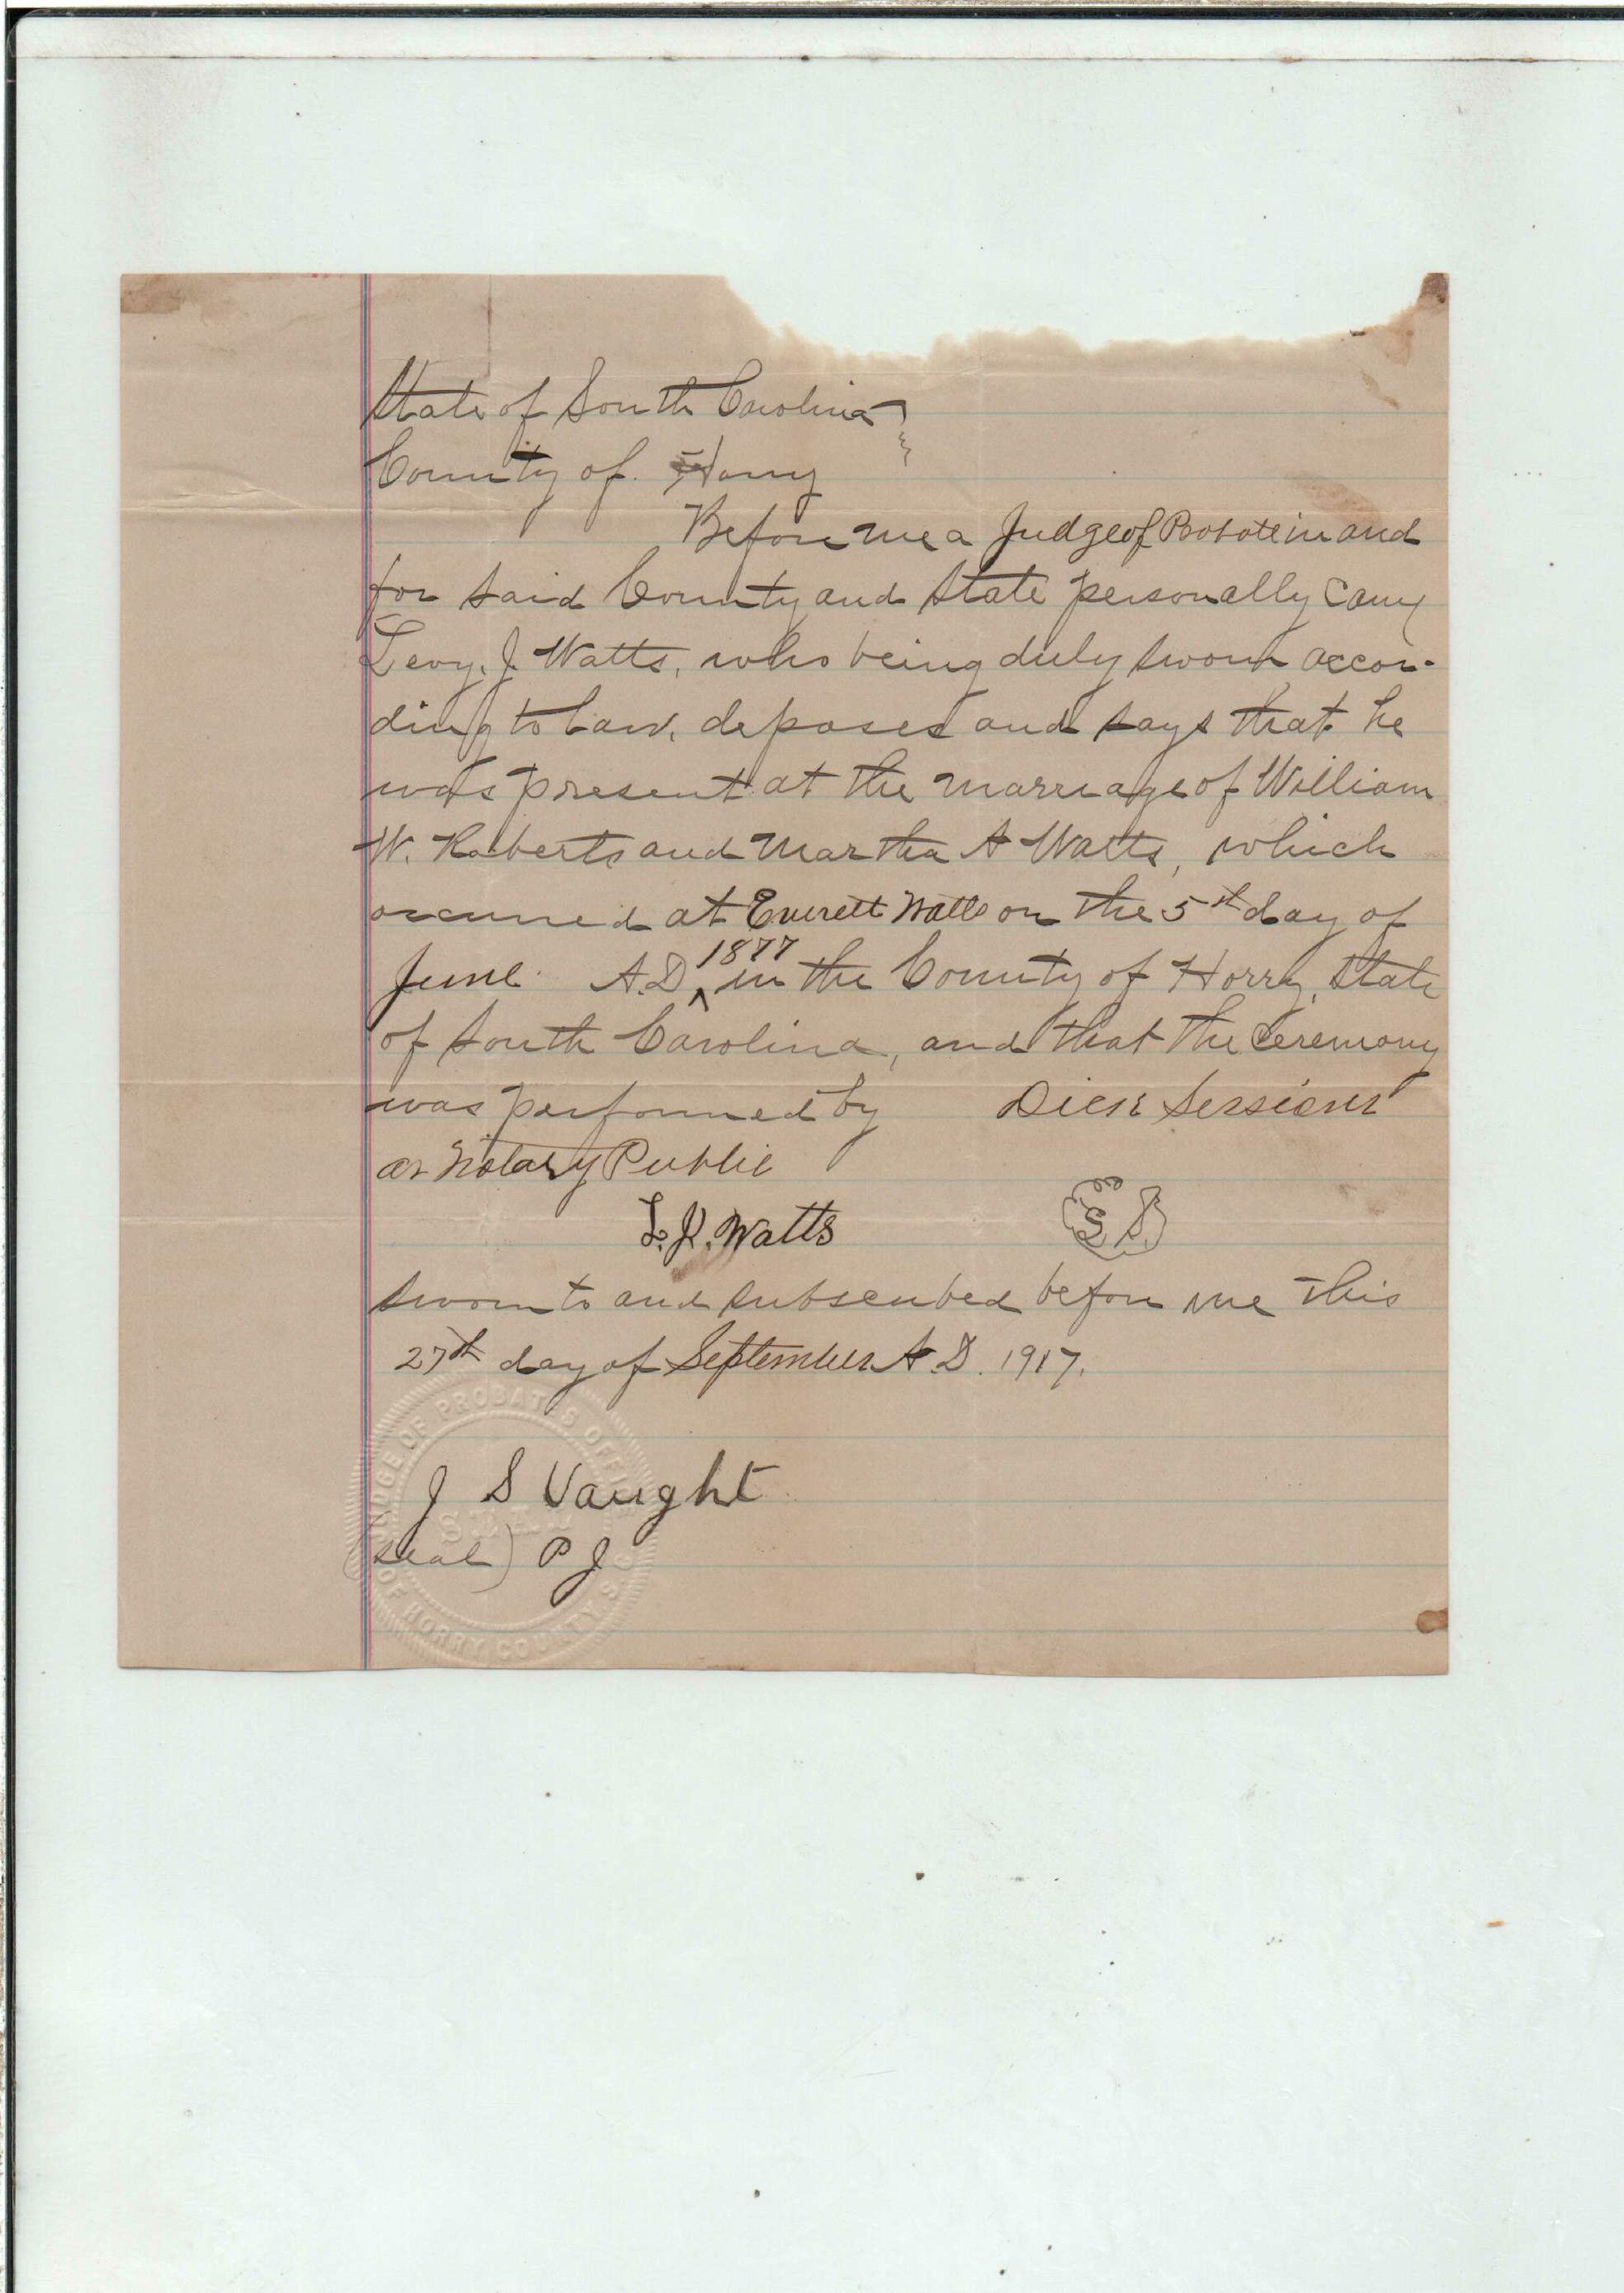 State of South Carolina }
County of. Horry
Before me a Judge of Probate in and
for said County and State personally came
Levy. J. Watts, who being duly sworn accor-
ding to law, deposes and says that he
was present at the marriage of William
W. Roberts and Martha A Watts, which
occurred at Everett Watts on the 5th day of
1877
June A.D. ^ in the County of Horry, State
of South Carolina, and that the Ceremony
was performed by Dick Sessions
as Notary Public
L. J. Watts
Sworn to and subscribed before me this
27th day of September A.D. 1917.
J S Vaught
(seal) P J
JUDGE OF PROBATES OFFICE
SEAL
OF HORRY COUNTY S.C.